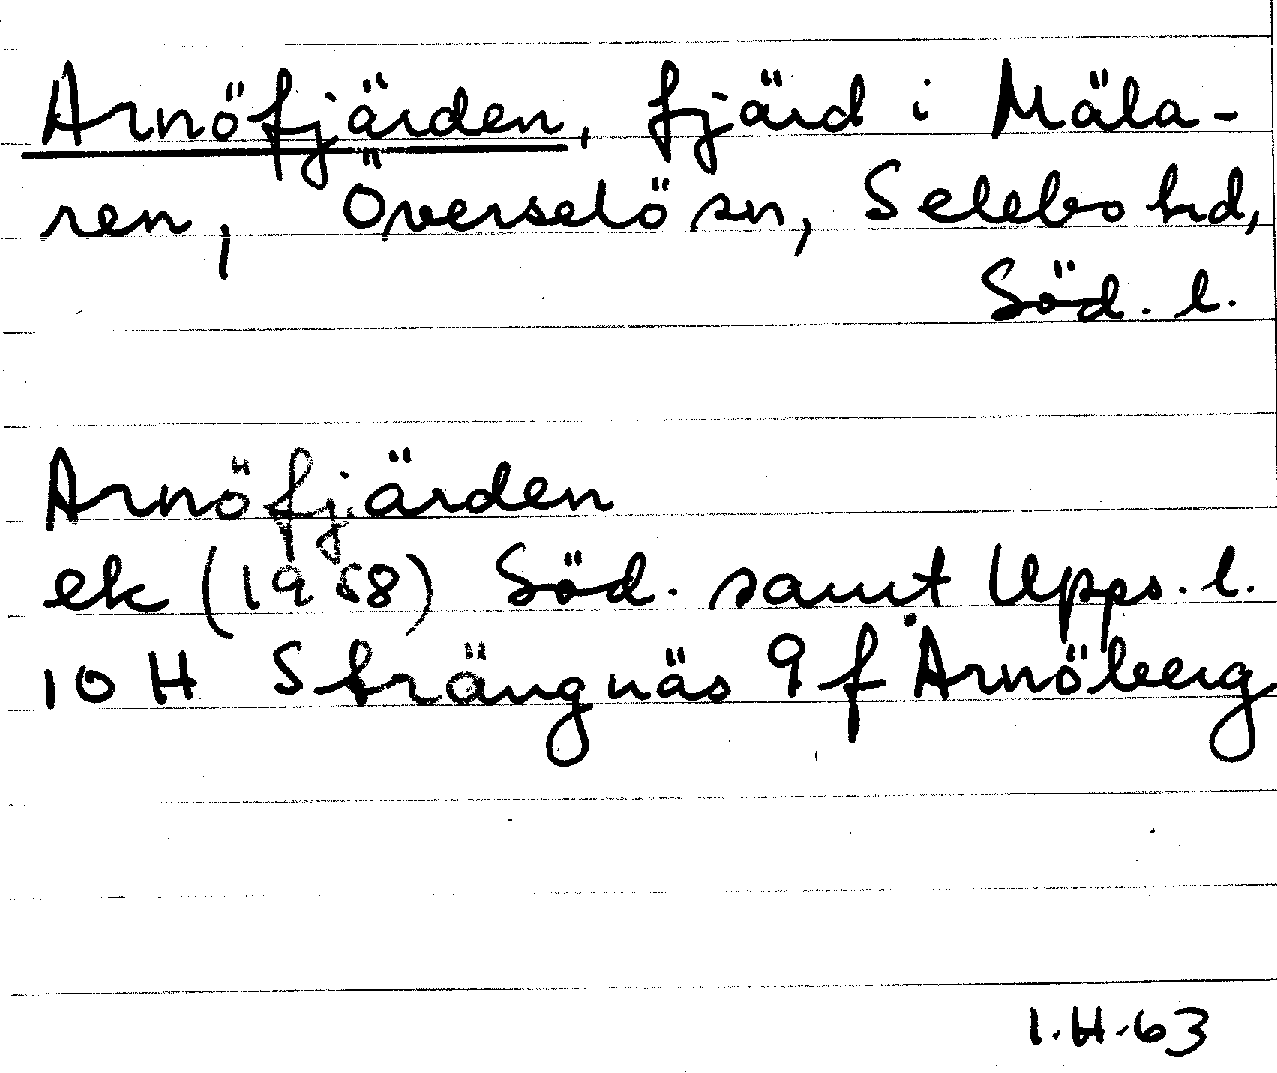 Arnöfjärden, fjärd i Mäla-
ren, Överselö sn, Selebo hd,
Söd. l.
Arnöfjärden
ek (1968) Söd. samt Upps. l.
10 H Strängnäs 9 f Arnöberg
I.H.63